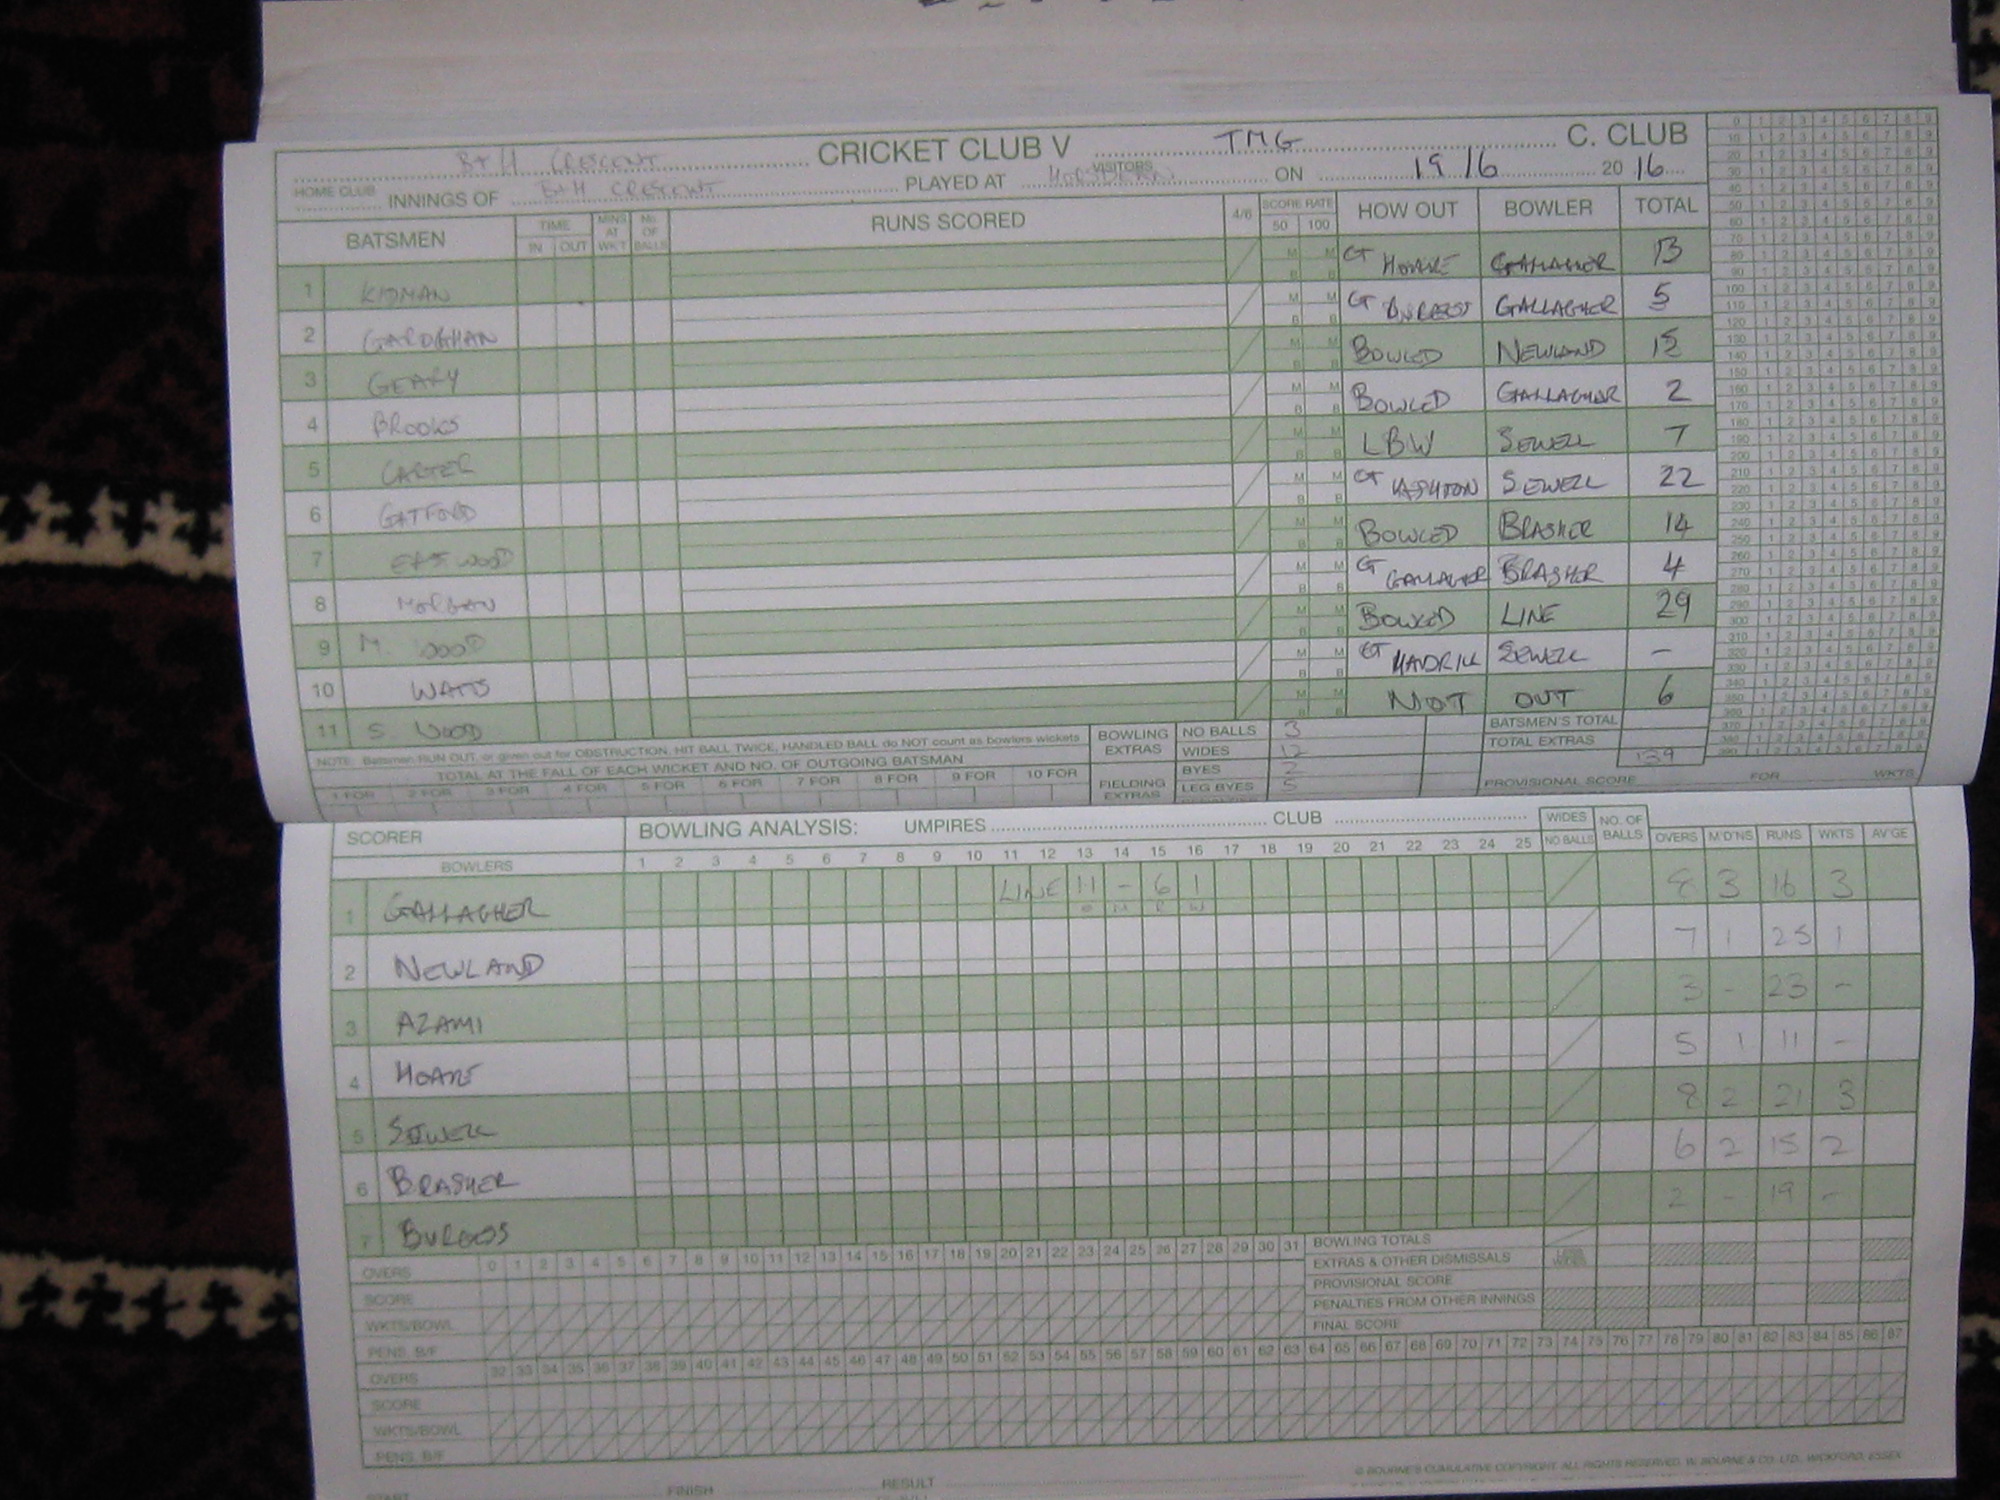 B+H CRESCENT CRICKET CLUB V TMG C. CLUB
HOME CLUB VISITORS
INNINGS OF B+H CRESCENT PLAYED AT ON 19/6 2016
BATSMEN TIME IN OUT MINS AT WKT No OF BALLS RUNS SCORED 4/6 SCORE RATE 50 100 HOW OUT BOWLER TOTAL
1 KIDMAN CT HOARE GALLAGHER 13
2 GAROGHAN CT BURGESS GALLAGHER 5
3 GEARY BOWLED NEWLAND
4 BROOKS BOWLED GALLAGHER 2
5 CARTER LBW SEWELL 7
6 GATFORD CT ASHTON SEWELL 22
7 EASTWOOD BOWLED BRASHER 14
8 MORGAN CT GALLAGHER BRASHER 4
9 M. WOOD BOWLED LINE 29
10 WATTS CT HADRILL SEWELL -
11 S. WOOD NOT OUT 6
NOTE: Batsmen RUN OUT, or given out for OBSTRUCTION, HIT BALL TWICE, HANDLED BALL do NOT count as bowlers wickets
TOTAL AT THE FALL OF EACH WICKET AND NO. OF OUTGOING BATSMAN
1 FOR 2 FOR 3 FOR 4 FOR 5 FOR 6 FOR 7 FOR 8 FOR 9 FOR 10 FOR
BOWLING EXTRAS NO BALLS 3
WIDES 12
FIELDING EXTRAS BYES 2
LEG BYES 5
BATSMEN'S TOTAL
TOTAL EXTRAS 139
PROVISIONAL SCORE FOR WKTS
SCORER BOWLING ANALYSIS: UMPIRES CLUB WIDES NO BALLS NO. OF BALLS OVERS M'D'NS RUNS WKTS AV'GE
BOWLERS 1 2 3 4 5 6 7 8 9 10 11 12 13 14 15 16 17 18 19 20 21 22 23 24 25
1 GALLAGHER LINE 11 - 6 1 8 3 16 3
O M R W
2 NEWLAND 7 1 25 1
3 AZAMI 3 - 23 -
4 HOARE 5 1 11 -
5 SEWELL 8 2 21 3
6 BRASHER 6 2 15 2
7 BURGESS 2 - 19 -
OVERS 0 1 2 3 4 5 6 7 8 9 10 11 12 13 14 15 16 17 18 19 20 21 22 23 24 25 26 27 28 29 30 31
SCORE
WKTS/BOWL
PENS. B/F
BOWLING TOTALS
EXTRAS & OTHER DISMISSALS
PROVISIONAL SCORE
PENALTIES FROM OTHER INNINGS
FINAL SCORE
OVERS 32 33 34 35 36 37 38 39 40 41 42 43 44 45 46 47 48 49 50 51 52 53 54 55 56 57 58 59 60 61 62 63 64 65 66 67 68 69 70 71 72 73 74 75 76 77 78 79 80 81 82 83 84 85 86 87
SCORE
WKTS/BOWL
PENS. B/F
© BOURNE'S CUMULATIVE COPYRIGHT. ALL RIGHTS RESERVED. W. BOURNE & CO. LTD., WICKFORD, ESSEX
START FINISH RESULT